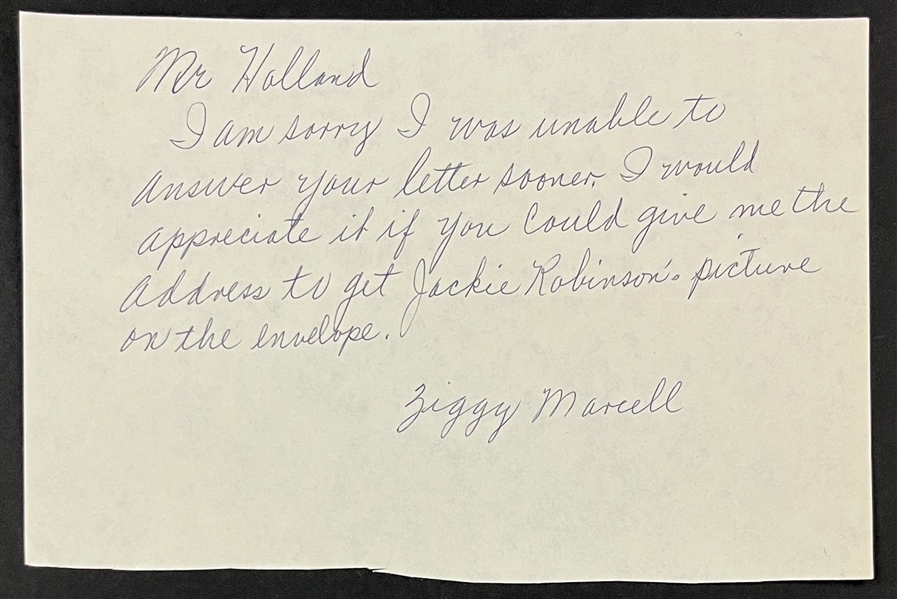 Mr Holland
I am sorry I was unable to
answer your letter sooner. I would
appreciate it if you could give me the
address to get Jackie Robinson's picture
on the envelope.
Ziggy Marcell